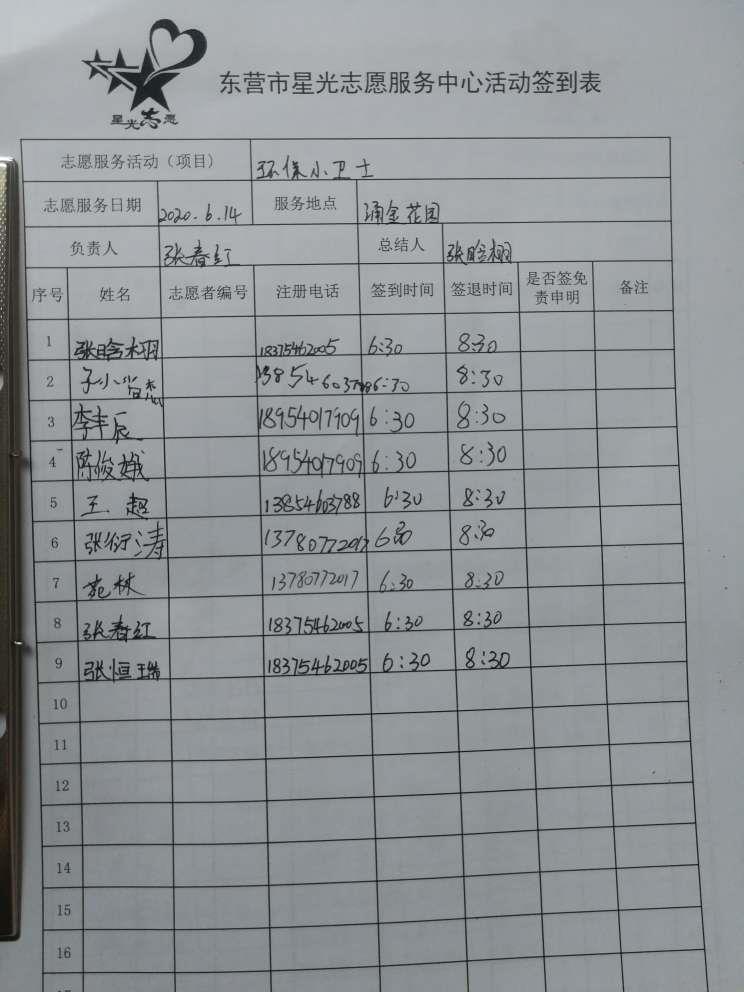 星光志愿
东营市星光志愿服务中心活动签到表
志愿服务活动（项目） 环保小卫士
志愿服务日期 2020.6.14 服务地点 涌金花园
负责人 张春红 总结人 张晗栩
序号 姓名 志愿者编号 注册电话 签到时间 签退时间 是否签免责申明 备注
1 张晗栩 18375462005 6:30 8:30
2 13854603788 6:30 8:30
3 李丰辰 18954017909 6:30 8:30
4 陈俊娥 18954017909 6:30 8:30
5 王超 13854603788 6:30 8:30
6 张衍涛 13780772017 6:30 8:30
7 苑林 13780772017 6:30 8:30
8 张春红 18375462005 6:30 8:30
9 张恒瑞 18375462005 6:30 8:30
10
11
12
13
14
15
16